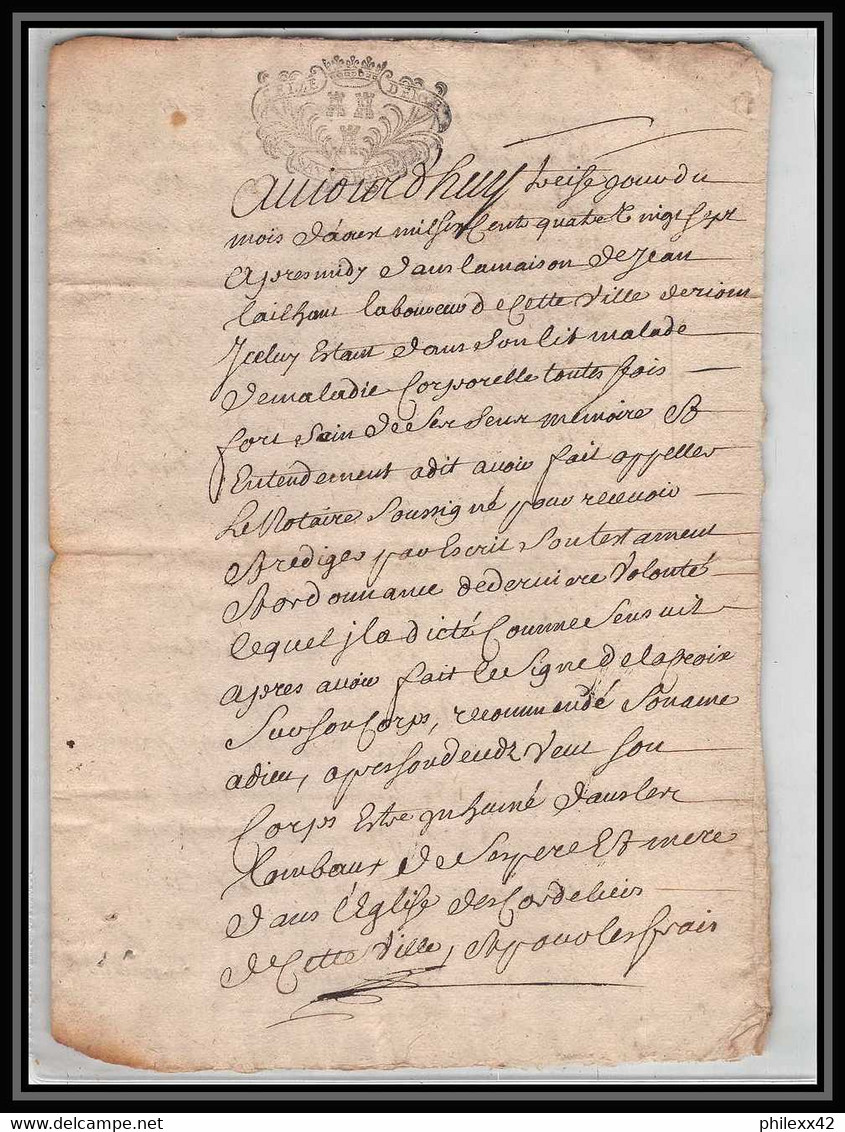 aujourdhuy treise jour du
mois daoust mil six Cent quatre Vingt Sept
apres midy dans la maison de Jean
laboureur de Cette Ville de riom
Iceluy Estant dans Son lit malade
de maladie Corporelle toutes fois
fort Sain de Ses Sens memoire Et
Entendement a dit avoir fait appeller
Le Notaire Soussigné pour recevoir
Et rediger par Escrit Son testament
Et ordonnance de derniere Volonté
lequel jl a dicté Comme Sensuit
apres avoir fait le Signe de la Croix
Sur Son Corps, recommandé Son ame
a dieu, apres Son decedz Veut Son
Corps Estre jnhumé dans les
tombaux de Ses pere Et mere
dans l'Eglise des Cordeliers
de Cette Ville, Et pour les frais
philexx42